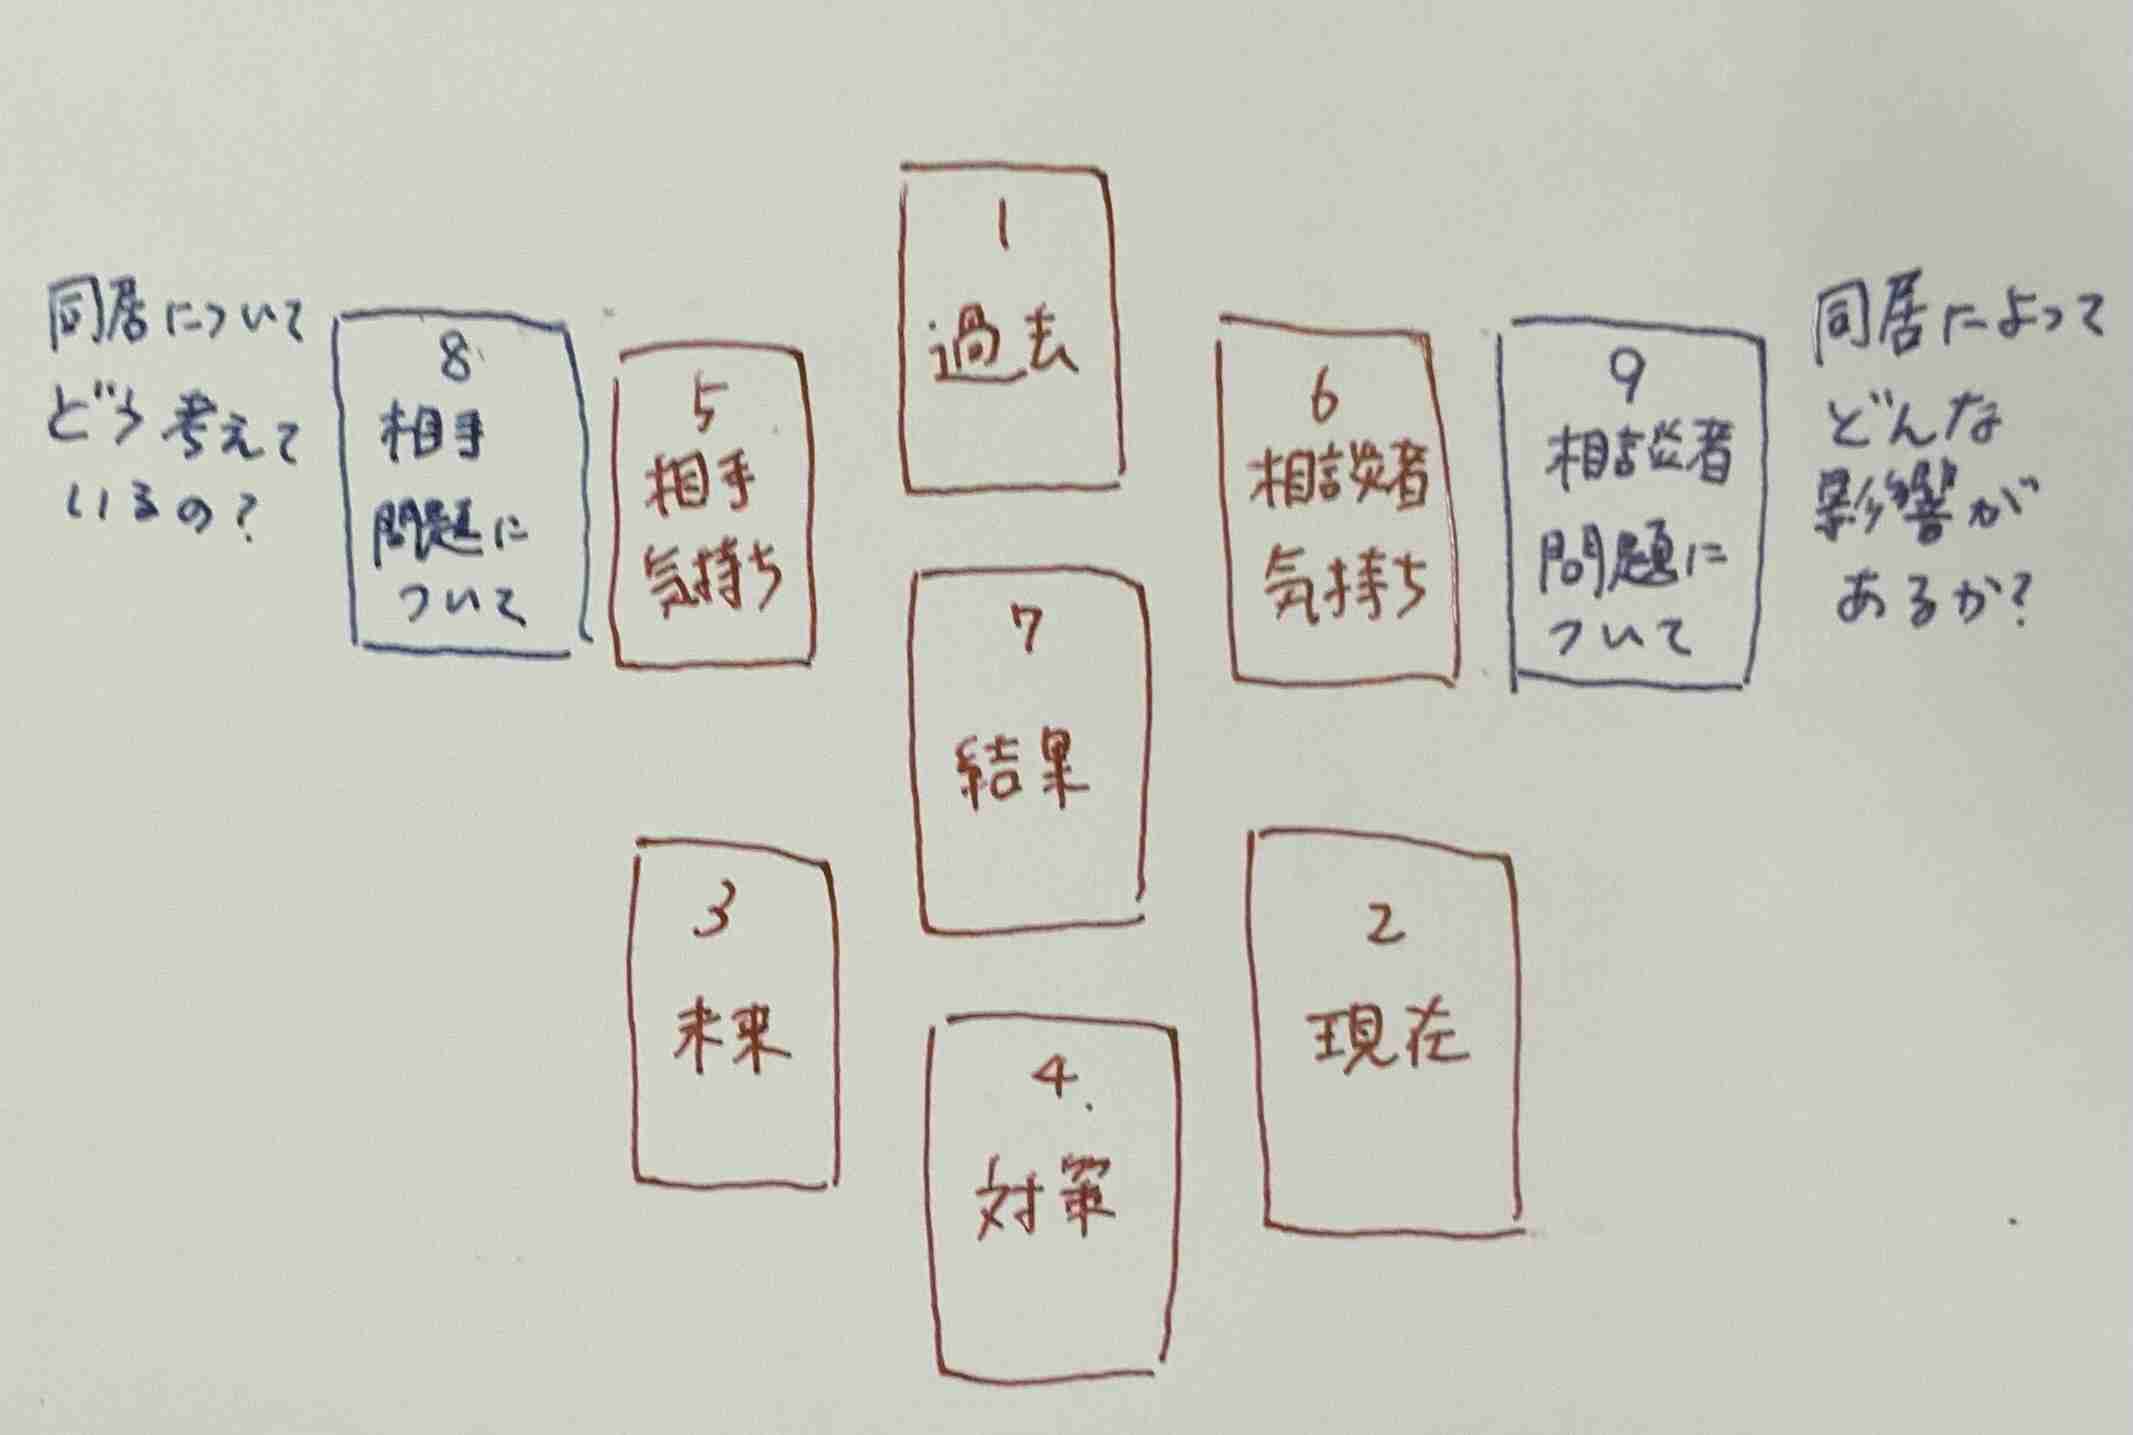 1
過去
同居について
どう考えて
いるの?
8
相手
問題に
ついて
5
相手
気持ち
6
相談者
気持ち
9
相談者
問題に
ついて
同居によって
どんな
影響が
あるか?
7
結果
3
未来
2
現在
4
対策